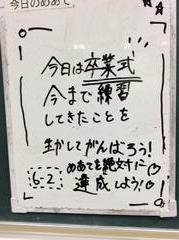 今日のめあて
今日は卒業式
今まで練習
してきたことを
生かしてがんばろう!
めあてを絶対に
6-2 達成しよう!